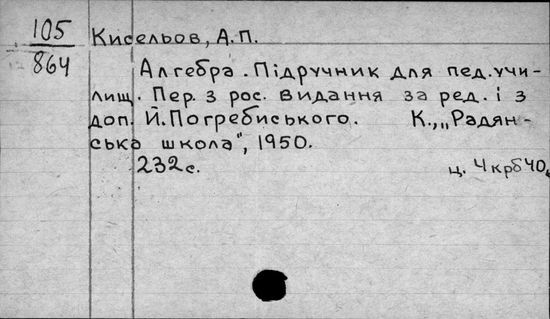 105
864
Кисельов, А.П.
Алгебра. Підручник для пед. учи-
лищ. Пер. з рос. видання за ред. і з
доп. Й. Погребиського. К., „Радян-
ська школа", 1950.
232 с. ц. 4 крб 40